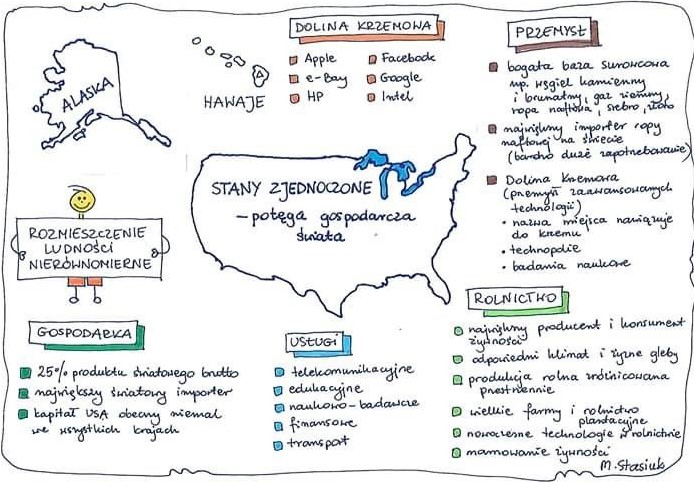 ALASKA
HAWAJE
DOLINA KRZEMOWA
Apple
e-Bay
HP
Facebook
Google
Intel
PRZEMYSŁ
bogata baza surowcowa
np. węgiel kamienny
i brunatny, gaz ziemny,
ropa naftowa, srebro, złoto
największy importer ropy
naftowej na świecie
(bardzo duże zapotrzebowanie)
Dolina Krzemowa
(przemysł zaawansowanych
technologii)
• nazwa miejsca nawiązuje
do krzemu
• technopolie
• badania naukowe
STANY ZJEDNOCZONE
– potęga gospodarcza
świata
ROZMIESZCZENIE
LUDNOŚCI
NIERÓWNOMIERNE
GOSPODARKA
25% produktu światowego brutto
największy światowy importer
kapitał USA obecny niemal
we wszystkich krajach
USŁUGI
telekomunikacyjne
edukacyjne
naukowo-badawcze
finansowe
transport
ROLNICTWO
największy producent i konsument
żywności
odpowiedni klimat i żyzne gleby
produkcja rolna zróżnicowana
przestrzennie
wielkie farmy i rolnictwo
plantacyjne
nowoczesne technologie w rolnictwie
marnowanie żywności
M. Stasiuk